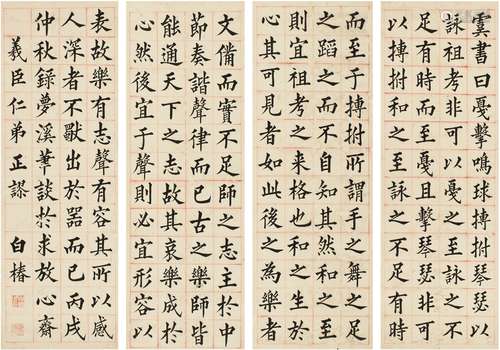 虞書曰戛擊鳴球搏拊琴瑟以
詠祖考非可以戛之至詠之不
足有時而至戛且擊琴瑟非可
以搏拊和之至詠之不足有時
而至于搏拊所謂手之舞之足
之蹈之而不自知其然和之至
則宜祖考之來格也和之生於
心其可見者如此後之為樂者
文備而實不足師之志主於中
節奏諧聲律而已古之樂師皆
能通天下之志故其哀樂成於
心然後宜于聲則必宜形容以
表故樂有志聲有容其所以感
人深者不獨出於器而已丙戌
仲秋錄夢溪筆談於求放心齋
羲臣仁弟正謬 白椿